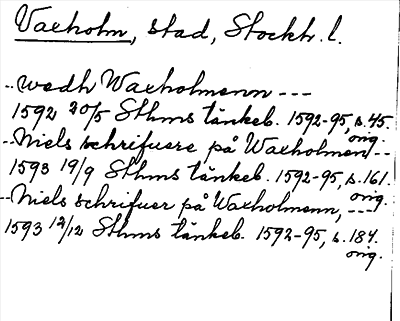 Vaxholm, stad, Stockh. l.
..wedh Waxholmenn ---
1592 20/5 Sthms tänkeb. 1592-95, s. 45.
orig.
--Niels schrifuere på Waxholmen--
1593 19/9 Sthms tänkeb. 1592-95, s. 161.
orig.
--Niels schrifuer på Waxholmenn, ---
1593 12/12 Sthms tänkeb. 1592-95, s. 184.
orig.